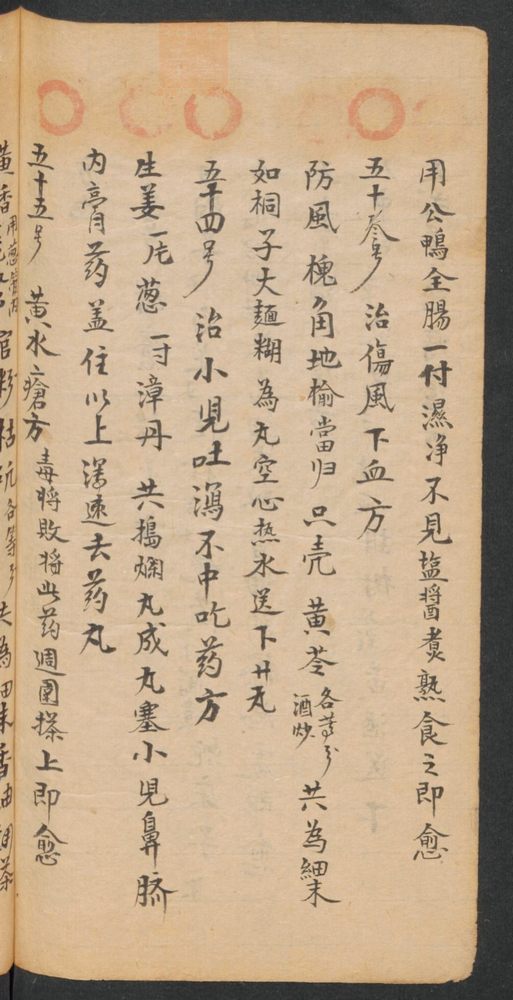 用公鴨全腸一付濕净不見塩醬煮熟食之即愈
五十叁号 治傷風下血方
防風 槐角 地榆 當归 只壳 黄芩 各等分 酒炒 共為細末
如桐子大麵糊為丸空心热水送下廾丸
五十四号 治小児吐瀉不中吃药方
生姜一片 葱一寸 漳丹 共搗爛丸成丸塞小児鼻臍
内膏药盖住以上瀉速去药丸
五十五号 黄水瘡方 毒将敗将此药週圍搽上即愈
黄香 官粉 枯矾 各等分 共為田末香油調搽